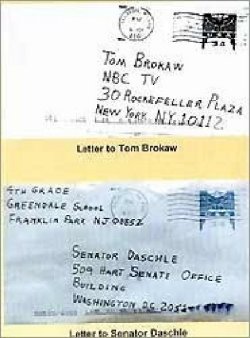 TOM BROKAW
NBC TV
30 ROCKEFELLER PLAZA
NEW YORK NY 10112
Letter to Tom Brokaw
4TH GRADE
GREENDALE SCHOOL
FRANKLIN PARK NJ 08852
SENATOR DASCHLE
509 HART SENATE OFFICE
BUILDING
WASHINGTON DC 205
Letter to Senator Daschle